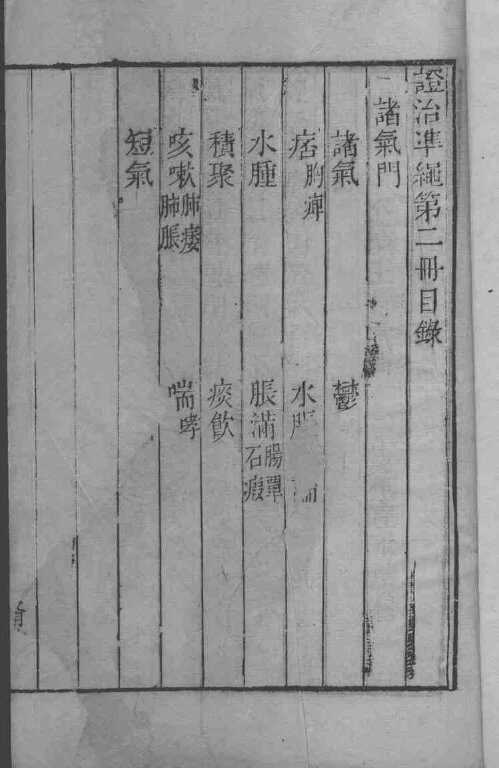 證治準繩第二冊目錄
諸氣門
諸氣 鬱
痞 胸痺 水
水腫 脹滿 腸覃 石瘕
積聚 痰飲
咳嗽 肺痿 肺脹 喘 哮
短氣